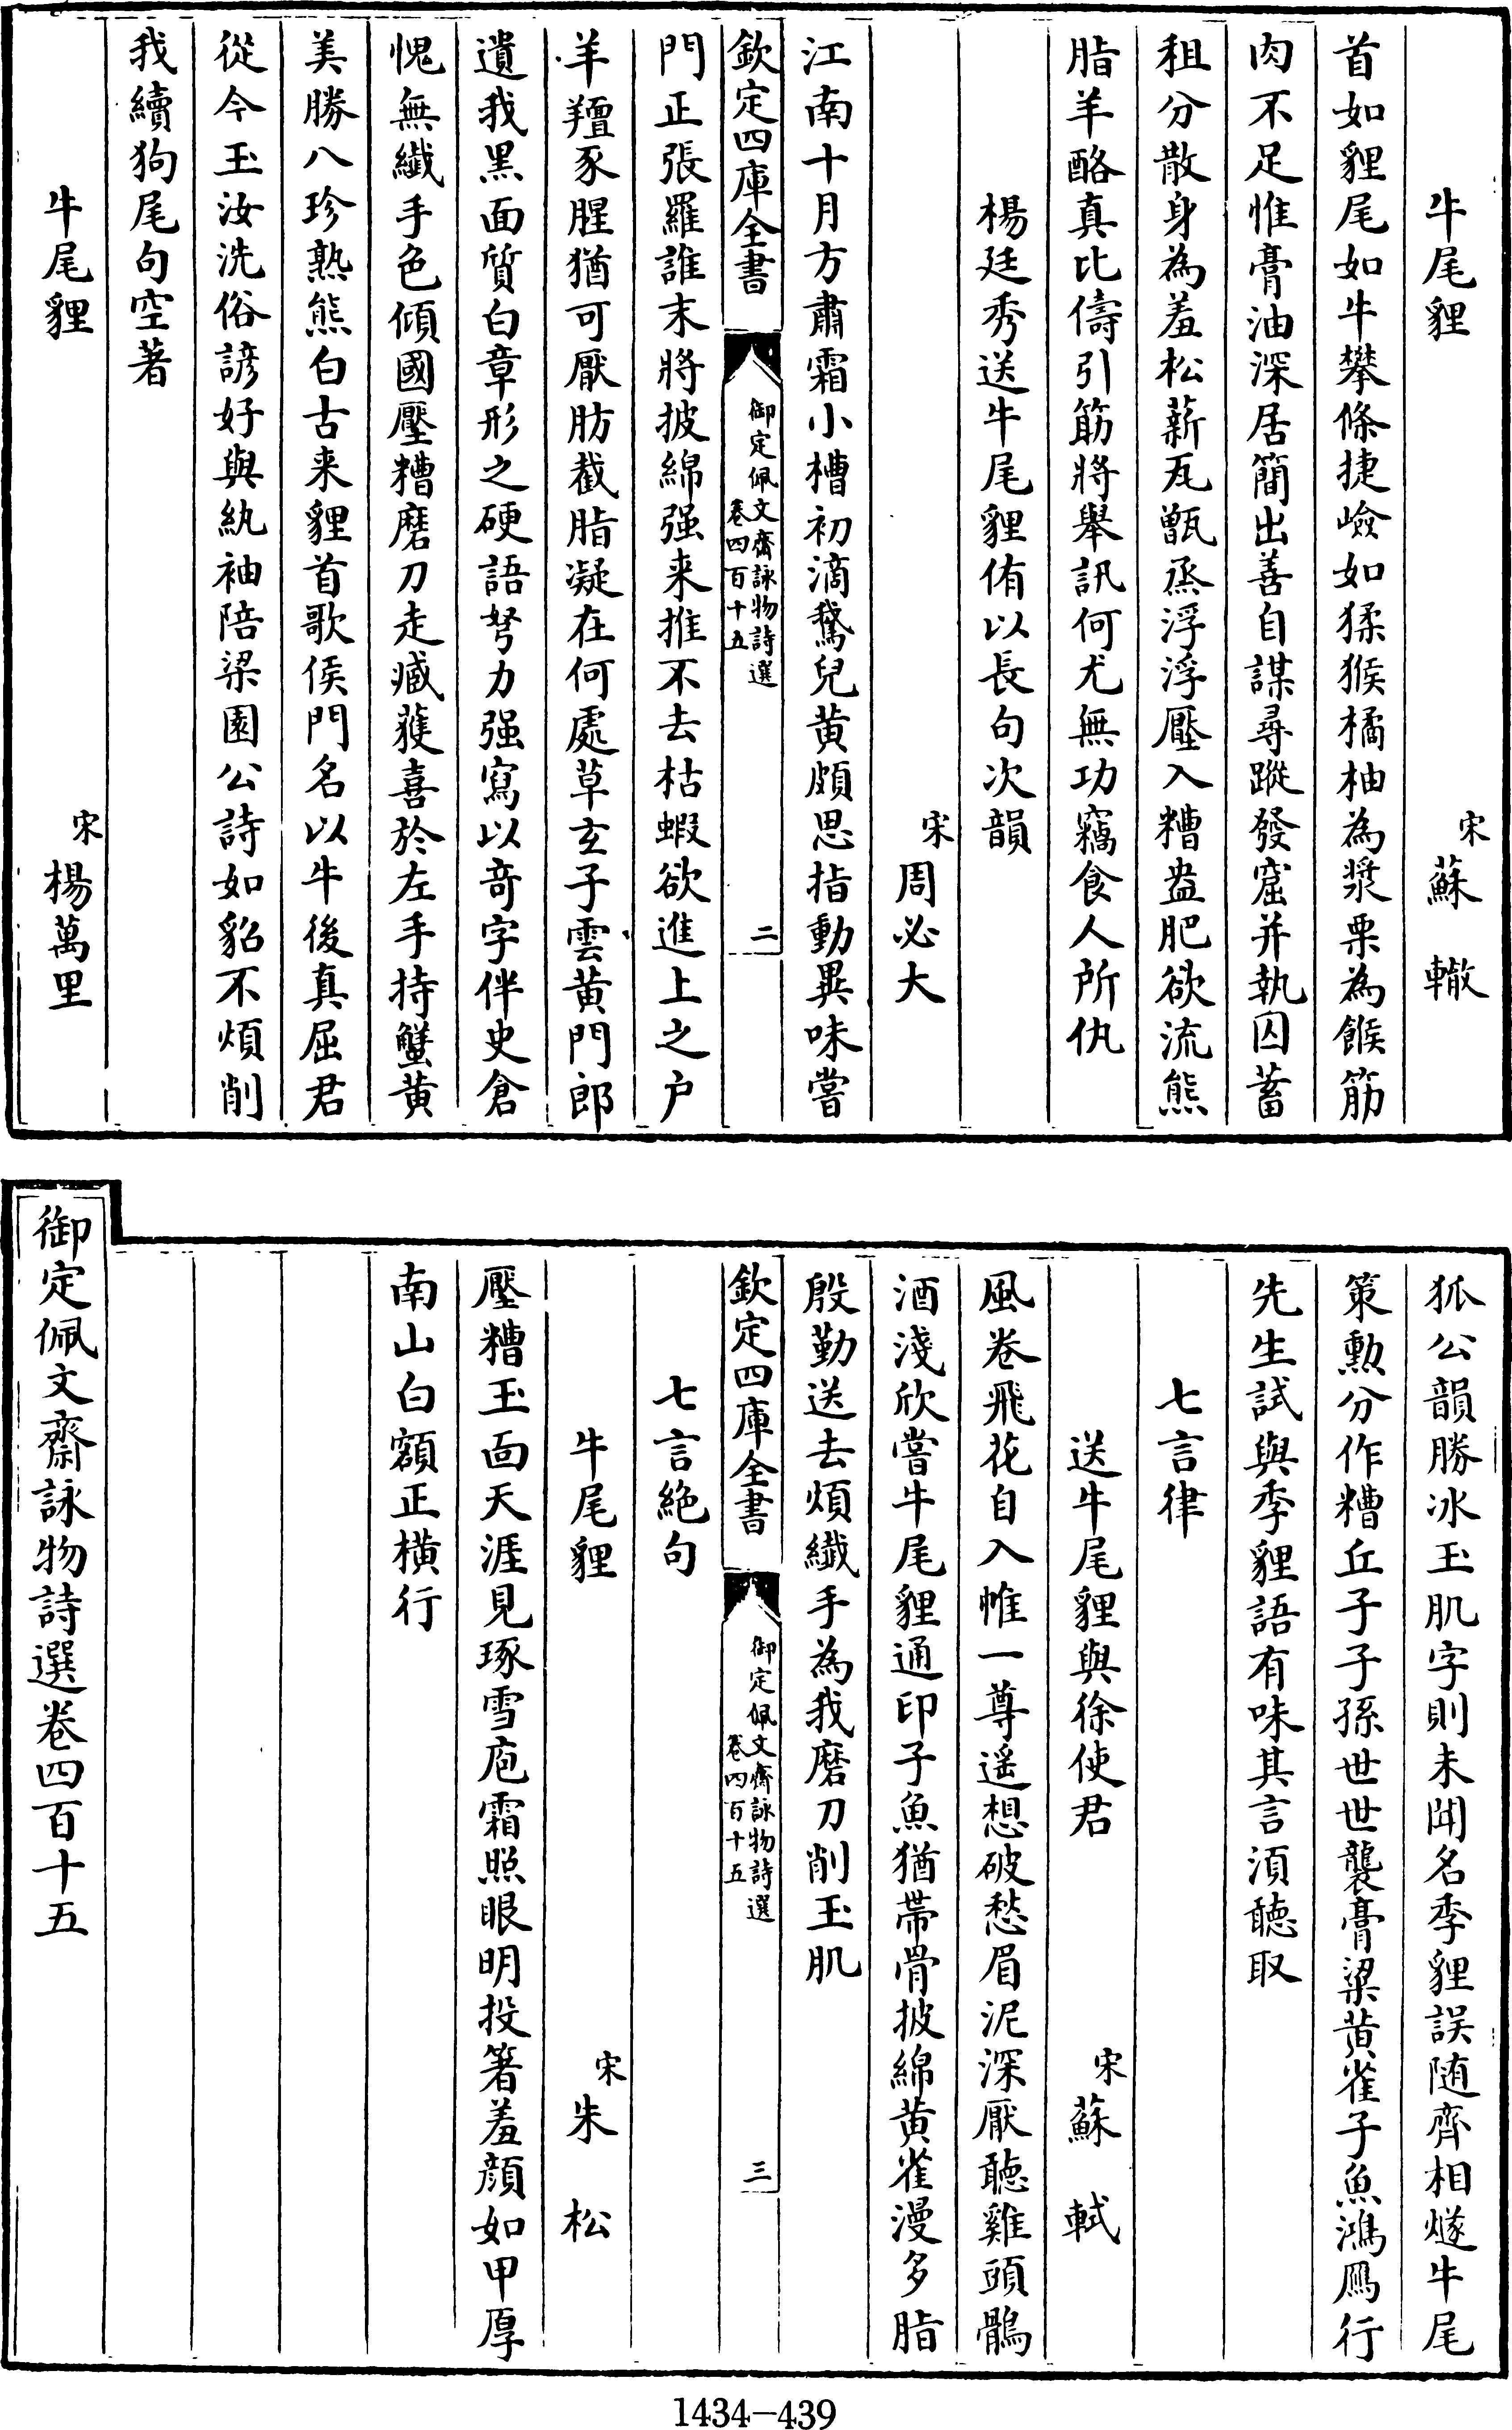 牛尾貍
宋蘇轍
首如貍尾如牛攀條捷嶮如猱猴橘柚為漿栗為餱筋
肉不足惟膏油深居簡出善自謀尋蹤發窟并執囚蓄
租分散身為羞松薪瓦甑烝浮浮壓入糟盎肥欲流熊
脂羊酪真比儔引筯將舉訊何尤無功竊食人所仇
楊廷秀送牛尾貍侑以長句次韻
宋周必大
江南十月方肅霜小槽初滴鵞兒黄頗思指動異味嘗
欽定四庫全書
御定佩文齋詠物詩選
卷四百十五
二
門正張羅誰末將披綿强来推不去枯蝦欲進上之户
羊羶豕腥猶可厭肪截脂凝在何處草玄子雲黄門郎
遺我黑面質白章形之硬語努力强寫以竒字伴史倉
愧無纖手色傾國壓糟磨刀走臧蒦喜於左手持蟹黄
美勝八珍熟熊白古来貍首歌侯門名以牛後真屈君
從今玉汝洗俗諺好與紈袖陪梁園公詩如貂不煩削
我續狗尾句空著
牛尾貍
宋楊萬里
狐公韻勝冰玉肌字則未聞名季貍誤随齊相燧牛尾
策勲分作糟丘子子孫世世襲膏粱黄雀子魚鴻鴈行
先生試與季貍語有味其言須聴取
七言律
送牛尾貍與徐使君
宋蘇軾
風卷飛花自入帷一尊遥想破愁眉泥深厭聴雞頭鶻
酒淺欣嘗牛尾貍通印子魚猶帶骨披綿黄雀漫多脂
殷勤送去煩纖手為我磨刀削玉肌
欽定四庫全書
御定佩文齋詠物詩選
卷四百十五
三
七言絶句
牛尾貍
宋朱松
壓糟玉面天涯見琢雪庖霜照眼明投箸羞顔如甲厚
南山白額正横行
御定佩文齋詠物詩選卷四百十五
1434-439